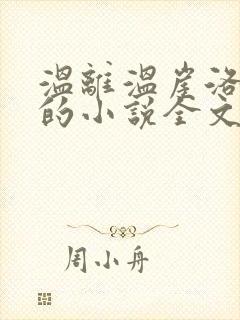 溫離溫崖洛
的小說全文
周小舟